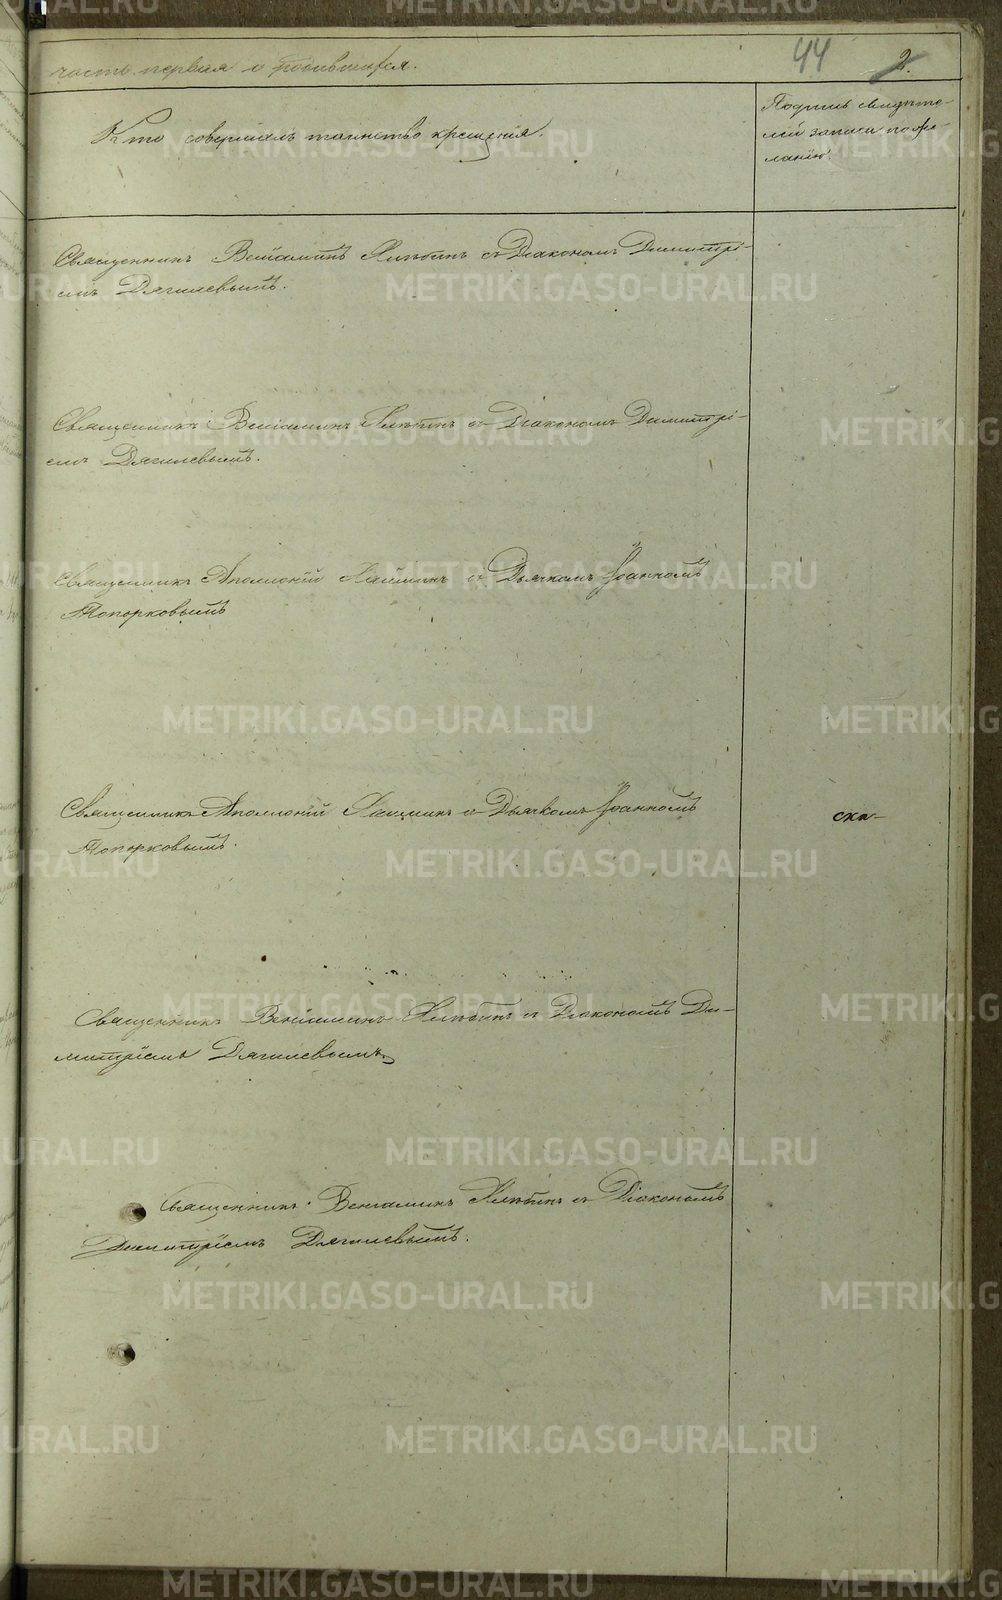 часть первая о родившихся.
44 2.
Кто совершалъ таинство крещенія.
Подпись свидѣте-
лей записи по же-
ланію.
Священникъ Веніаминъ с Діакономъ Димитрі-
емъ Дягилевымъ.
Священникъ Веніаминъ с Діакономъ Димитрі-
емъ Дягилевымъ.
Священникъ Аполлоній с Дьячкомъ Іоанномъ
Топорковымъ
Священникъ Аполлоній с Дьячкомъ Іоанномъ
Топорковымъ.
ска-
Священникъ Веніаминъ с Діакономъ Ди-
митріемъ Дягилевымъ.
Священникъ Веніаминъ с Діакономъ
Димитріемъ Дягилевымъ.
METRIKI.GASO-URAL.RU